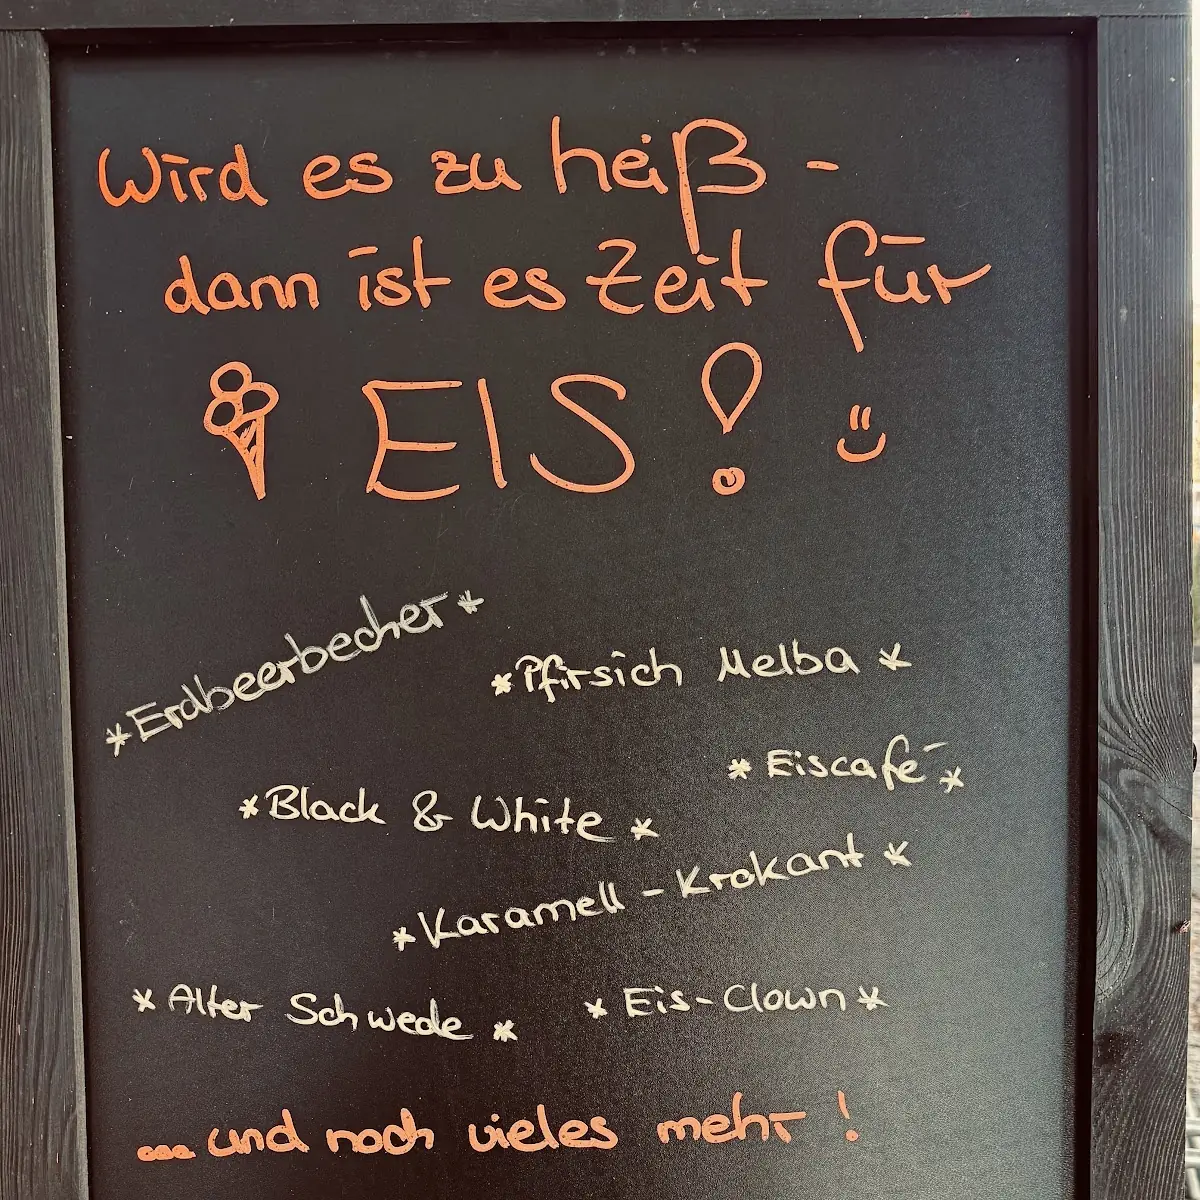 Wird es zu heiß -
dann ist es Zeit für
EIS!
*Erdbeerbecher*
*Pfirsich Melba*
*Eiscafé*
*Black & White*
*Karamell-Krokant*
*Alter Schwede*
*Eis-Clown*
... und noch vieles mehr!